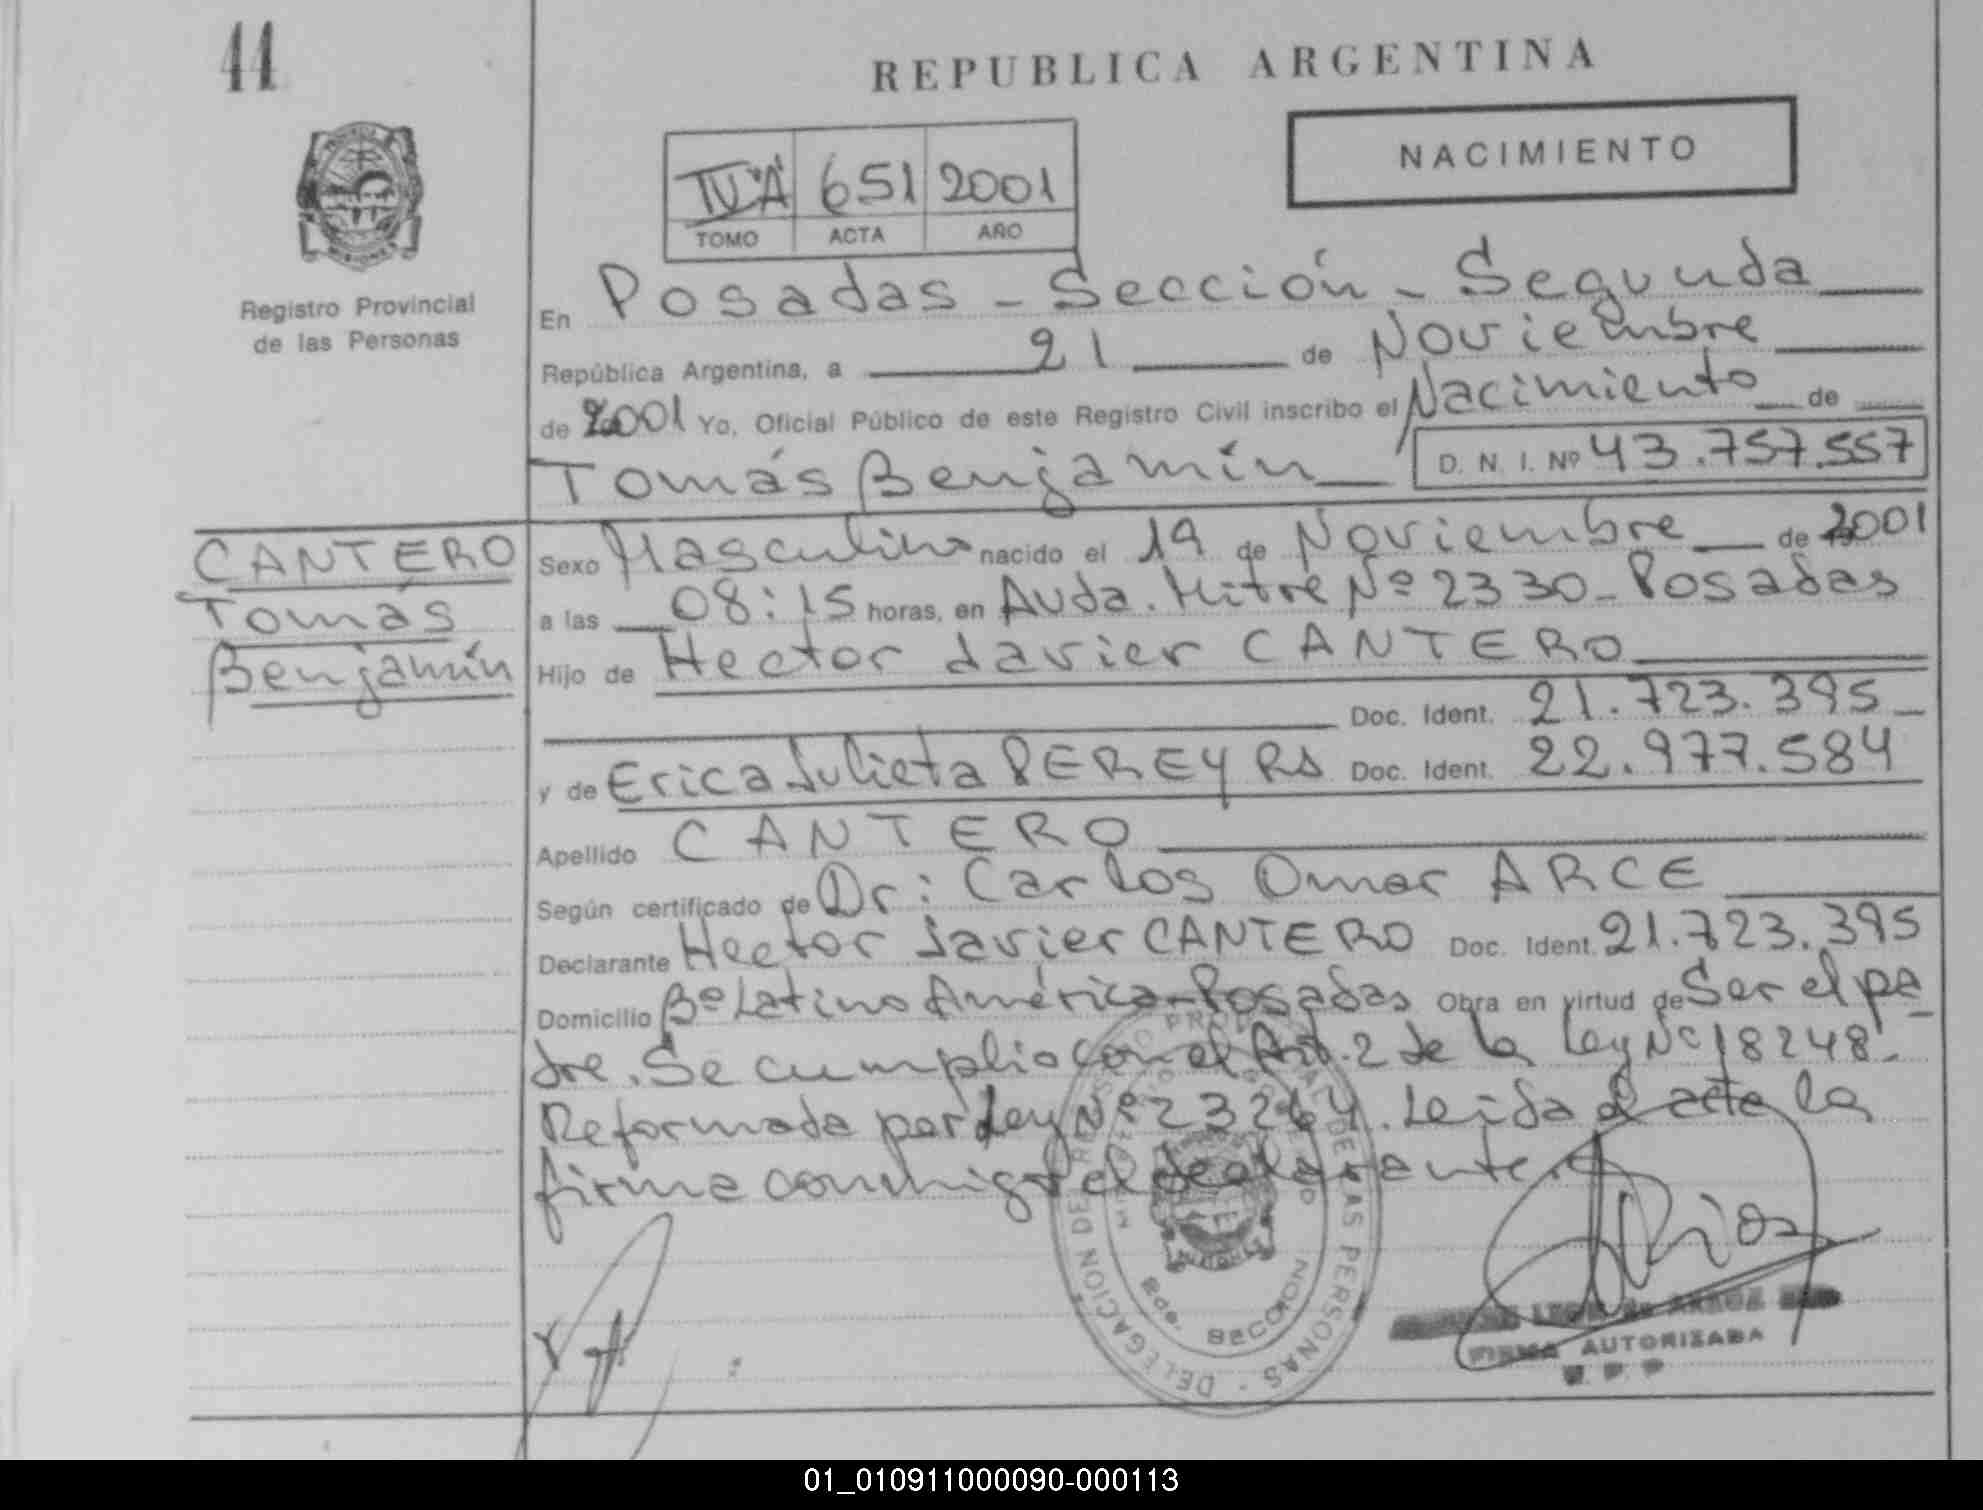 44
REPUBLICA ARGENTINA
NACIMIENTO
651 2001
TOMO ACTA AÑO
Registro Provincial
de las Personas
En Posadas - Sección - Segunda
República Argentina, a 21 de Noviembre
de 2001 Yo, Oficial Público de este Registro Civil inscribo el Nacimiento de
Tomás Benjamín D. N. I. Nº 43.757.557
CANTERO
Tomás
Benjamín
Sexo Masculino nacido el 19 de Noviembre de 2001
a las 08:15 horas, en Avda. Mitre Nº 2330 - Posadas
Hijo de Hector Javier CANTERO
Doc. Ident. 21.723.395
y de Erica Julieta PEREYRA Doc. Ident. 22.977.584
Apellido CANTERO
Según certificado de Dr: Carlos Omar ARCE
Declarante Hector Javier CANTERO Doc. Ident. 21.723.395
Domicilio Bº Latino América - Posadas Obra en virtud de Ser el pa-
dre. Se cumplio con el Art. 2 de la Ley Nº 18248.
Reformada por Ley Nº 23264. Leida el acta la
firma conmigo el declarante.
DELEGACION DE PERSONAS
2da. SECCION
MISIONES
Rios
FIRMA AUTORIZADA
01_010911000090-000113